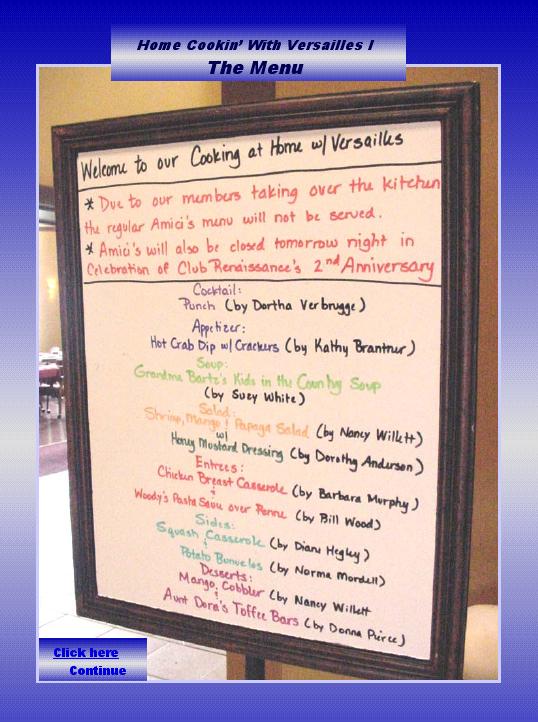 Home Cookin' With Versailles I
The Menu
Welcome to our Cooking at Home w/ Versailles
* Due to our members taking over the kitchen
the regular Amici's menu will not be served.
* Amici's will also be closed tomorrow night in
Celebration of Club Renaissance's 2nd Anniversary
Cocktail:
Punch (by Dortha Verbrugge)
Appetizer:
Hot Crab Dip w/ Crackers (by Kathy Brantner)
Soup:
Grandma Bartz's Kids in the Country Soup
(by Suzy White)
Salad:
Shrimp, Mango & Papaya Salad (by Nancy Willett)
w/
Honey Mustard Dressing (by Dorothy Anderson)
Entrees:
Chicken Breast Casserole (by Barbara Murphy)
Woody's Pasta Sauce over Penne (by Bill Wood)
Sides:
Squash Casserole (by Diane Hegley)
&
Potato Bunuelos (by Norma Mordell)
Desserts:
Mango Cobbler (by Nancy Willett
&
Aunt Dora's Toffee Bars (by Donna Pierce)
Click here
Continue